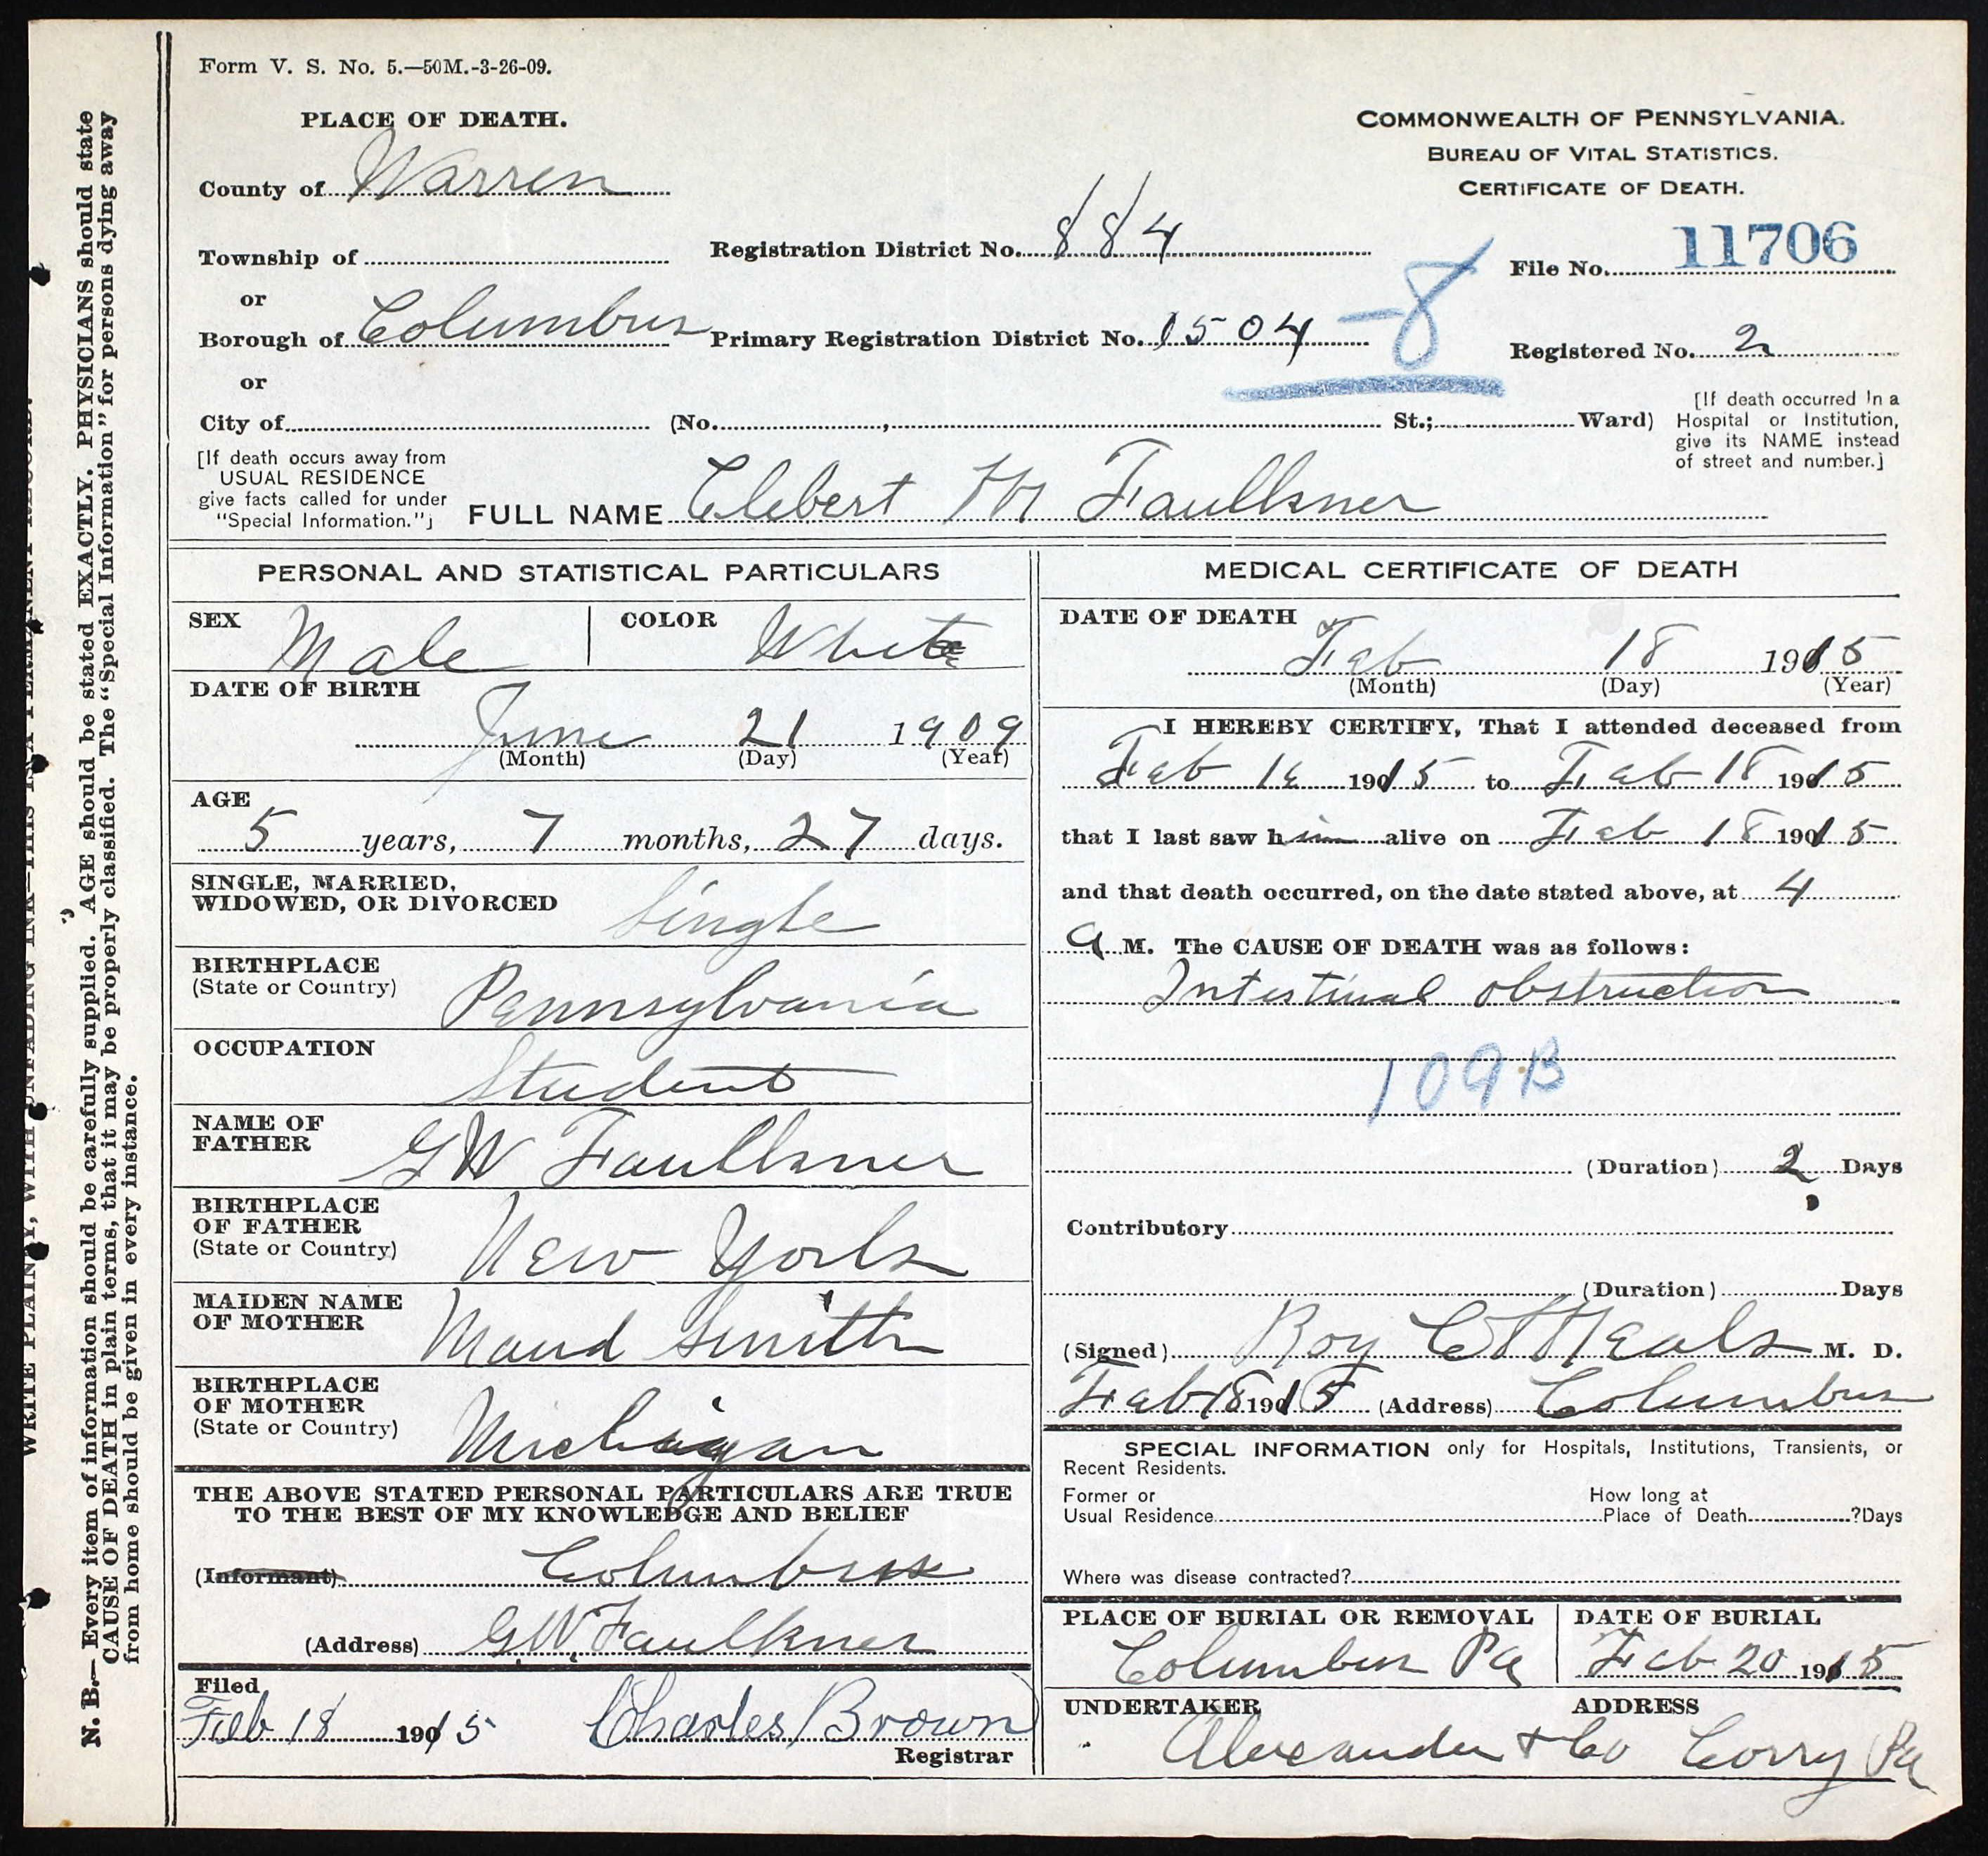 Form V. S. No. 5.—50M.-3-26-09.
PLACE OF DEATH.
County of Warren
Township of
or
Borough of Columbus
or
City of (No. , St.; Ward)
COMMONWEALTH OF PENNSYLVANIA.
BUREAU OF VITAL STATISTICS.
CERTIFICATE OF DEATH.
Registration District No. 884
Primary Registration District No. 1504 -8
File No. 11706
Registered No. 2
[If death occurred in a
Hospital or Institution,
give its NAME instead
of street and number.]
[If death occurs away from
USUAL RESIDENCE
give facts called for under
"Special Information."]
FULL NAME Clebert M Faulkner
PERSONAL AND STATISTICAL PARTICULARS
SEX Male
COLOR White
DATE OF BIRTH
June 21 1909
(Month) (Day) (Year)
AGE
5 years, 7 months, 27 days.
SINGLE, MARRIED,
WIDOWED, OR DIVORCED Single
BIRTHPLACE
(State or Country) Pennsylvania
OCCUPATION
Student
NAME OF
FATHER G W Faulkner
BIRTHPLACE
OF FATHER
(State or Country) New York
MAIDEN NAME
OF MOTHER Maud Smith
BIRTHPLACE
OF MOTHER
(State or Country) Michigan
THE ABOVE STATED PERSONAL PARTICULARS ARE TRUE
TO THE BEST OF MY KNOWLEDGE AND BELIEF
(Informant) Columbus
(Address) G.W. Faulkner
Filed
Feb 18 1915 Charles Brown
Registrar
MEDICAL CERTIFICATE OF DEATH
DATE OF DEATH
Feb 18 1915
(Month) (Day) (Year)
I HEREBY CERTIFY, That I attended deceased from
Feb 16 1915 to Feb 18 1915
that I last saw him alive on Feb 18 1915
and that death occurred, on the date stated above, at 4
a M. The CAUSE OF DEATH was as follows:
Intestinal obstruction
109B
(Duration) 2 Days
Contributory
(Duration) Days
(Signed) Roy M. D.
Feb 18 1915 (Address) Columbus
SPECIAL INFORMATION only for Hospitals, Institutions, Transients, or
Recent Residents.
Former or
Usual Residence
How long at
Place of Death ?Days
Where was disease contracted?
PLACE OF BURIAL OR REMOVAL
Columbus Pa
DATE OF BURIAL
Feb 20 1915
UNDERTAKER ADDRESS
Alexander & Co Corry Pa
WRITE PLAINLY, WITH UNFADING INK—THIS IS A PERMANENT RECORD.
N. B.— Every item of information should be carefully supplied. AGE should be stated EXACTLY. PHYSICIANS should state
CAUSE OF DEATH in plain terms, that it may be properly classified. The "Special Information" for persons dying away
from home should be given in every instance.